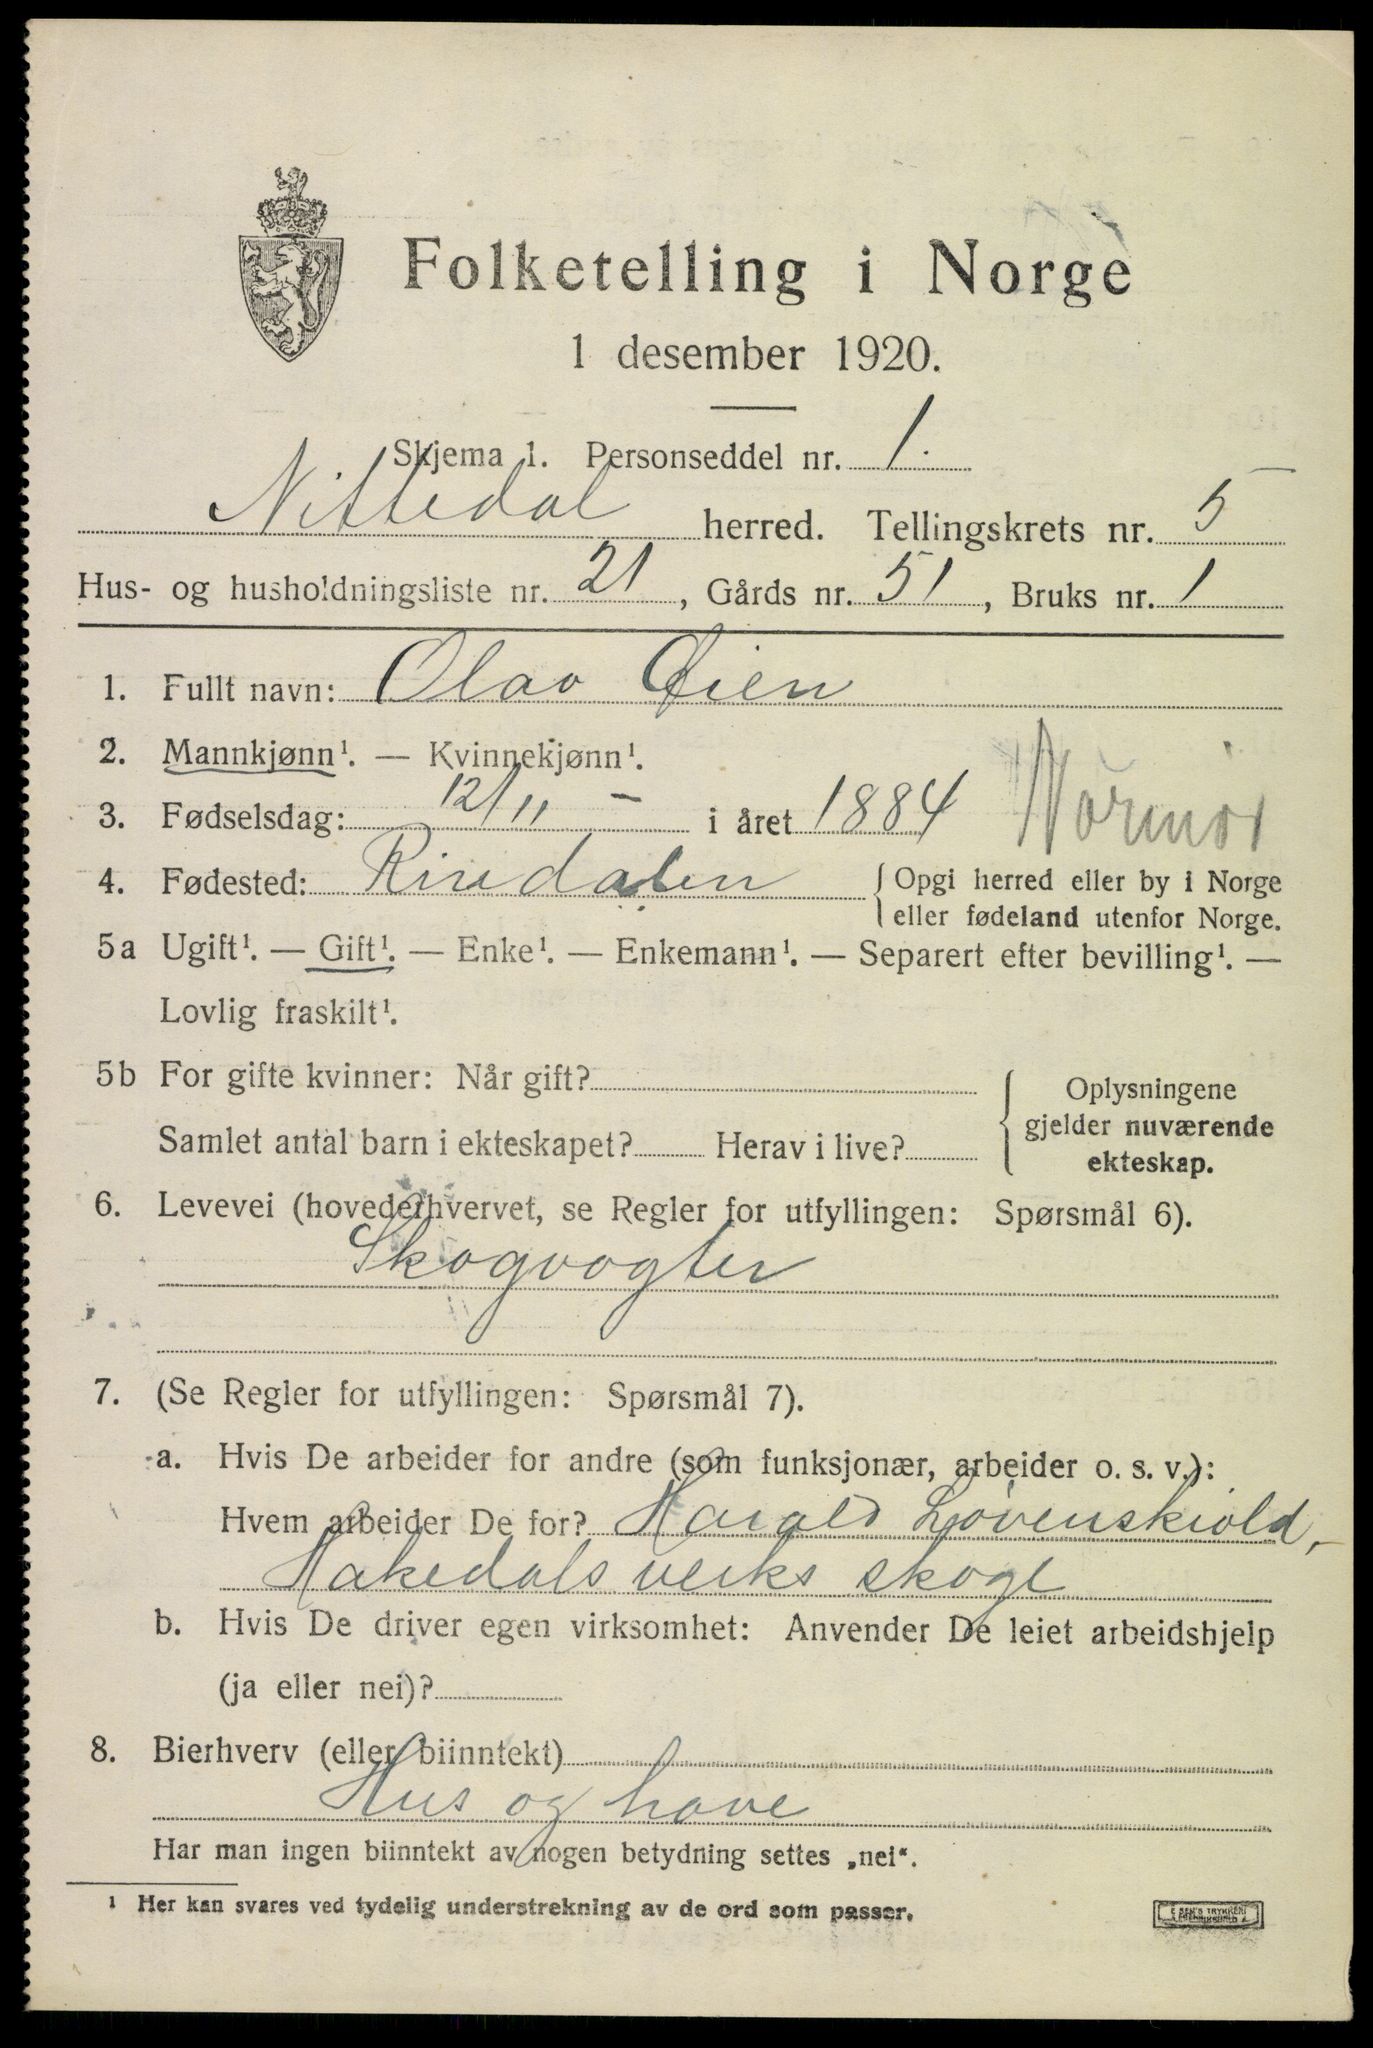 Folketelling i Norge
1 desember 1920.
Skjema 1. Personseddel nr. 1.
Nittedal herred. Tellingskrets nr. 5
Hus- og husholdningsliste nr. 21, Gårds nr. 51, Bruks nr. 1
1. Fullt navn: Olav Øien
2. Mannkjønn¹. — Kvinnekjønn¹.
3. Fødselsdag: 12/11 - i året 1884 Normør
4. Fødested: Rindalen {Opgi herred eller by i Norge
eller fødeland utenfor Norge.
5a Ugift¹. — Gift¹. — Enke¹. — Enkemann¹. — Separert efter bevilling¹. —
Lovlig fraskilt¹.
5b For gifte kvinner: Når gift?
Samlet antal barn i ekteskapet? Herav i live?
{Oplysningene
gjelder nuværende
ekteskap.
6. Levevei (hovederhvervet, se Regler for utfyllingen: Spørsmål 6).
Skogvogter
7. (Se Regler for utfyllingen: Spørsmål 7).
a. Hvis De arbeider for andre (som funksjonær, arbeider o. s. v.):
Hvem arbeider De for? Harald Løvenskiold,
Hakedals verks skoge
b. Hvis De driver egen virksomhet: Anvender De leiet arbeidshjelp
(ja eller nei)?
8. Bierhverv (eller biinntekt)
Hus og have
Har man ingen biinntekt av nogen betydning settes „nei“.
¹ Her kan svares ved tydelig understrekning av de ord som passer.